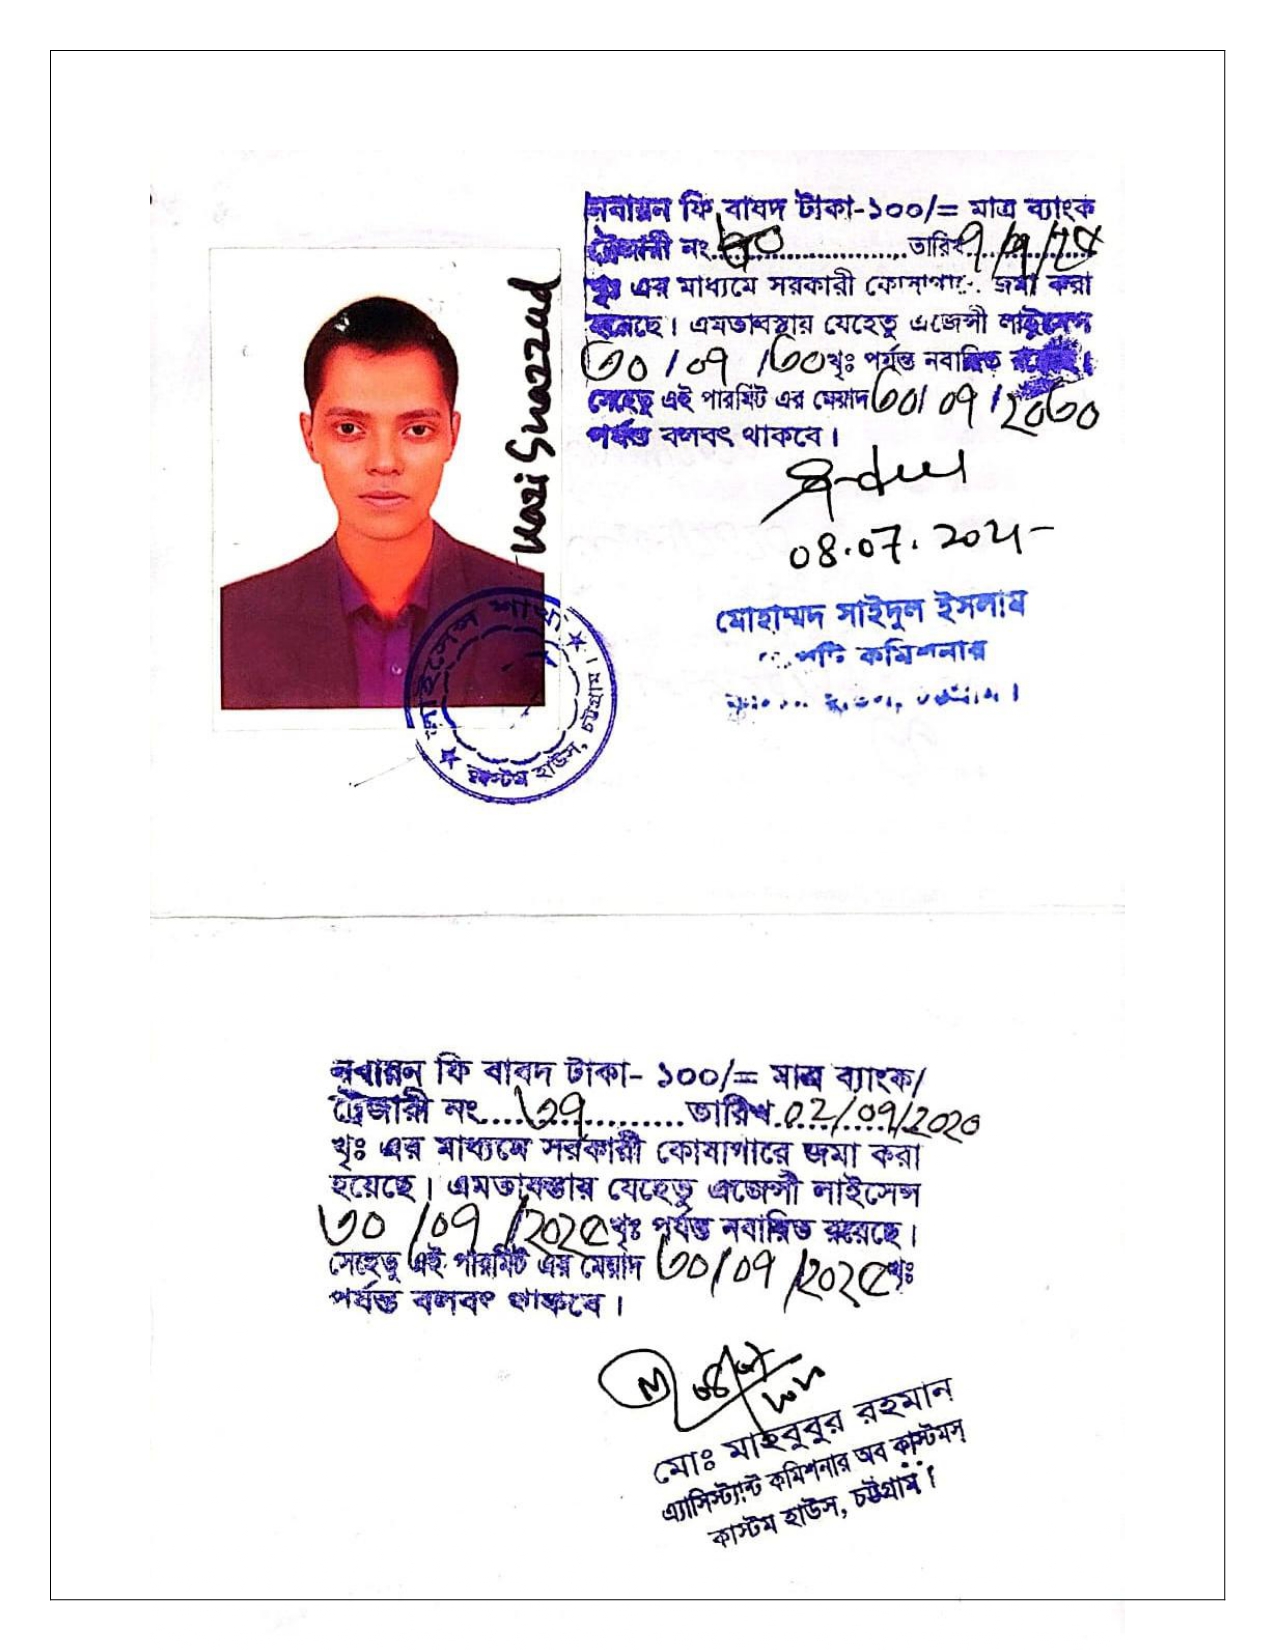 নবায়ন ফি বাবদ টাকা-১০০/= মাত্র ব্যাংক
ট্রেজারী নং........................তারিখ
খৃঃ এর মাধ্যমে সরকারী কোষাগারে জমা করা
হয়েছে। এমতাবস্থায় যেহেতু এজেন্সী লাইসেন্স
৩০/০৭/৩০খৃঃ পর্যন্ত নবায়িত রয়েছে।
সেহেতু এই পারমিট এর মেয়াদ ৩০/০৭/২০৩০
পর্যন্ত বলবৎ থাকবে।
08.07.
Kazi Shazzad
মোহাম্মদ সাইদুল ইসলাম
কমিশনার
লাইসেন্স শাখা
কাস্টম হাউস, চট্টগ্রাম।
নবায়ন ফি বাবদ টাকা- ১০০/= মাত্র ব্যাংক/
ট্রেজারী নং....৩৭..........তারিখ.02/০৭/২০২০
খৃঃ এর মাধ্যমে সরকারী কোষাগারে জমা করা
হয়েছে। এমতাবস্তায় যেহেতু এজেন্সী লাইসেন্স
৩০/০৭/২০২৫খৃঃ পর্যন্ত নবায়িত রয়েছে।
সেহেতু এই পারমিট এর মেয়াদ ৩০/০৭/২০২৫খৃঃ
পর্যন্ত বলবৎ থাকবে।
মোঃ মাহবুবুর রহমান
এ্যাসিস্ট্যান্ট কমিশনার অব কাস্টমস্
কাস্টম হাউস, চট্টগ্রাম।